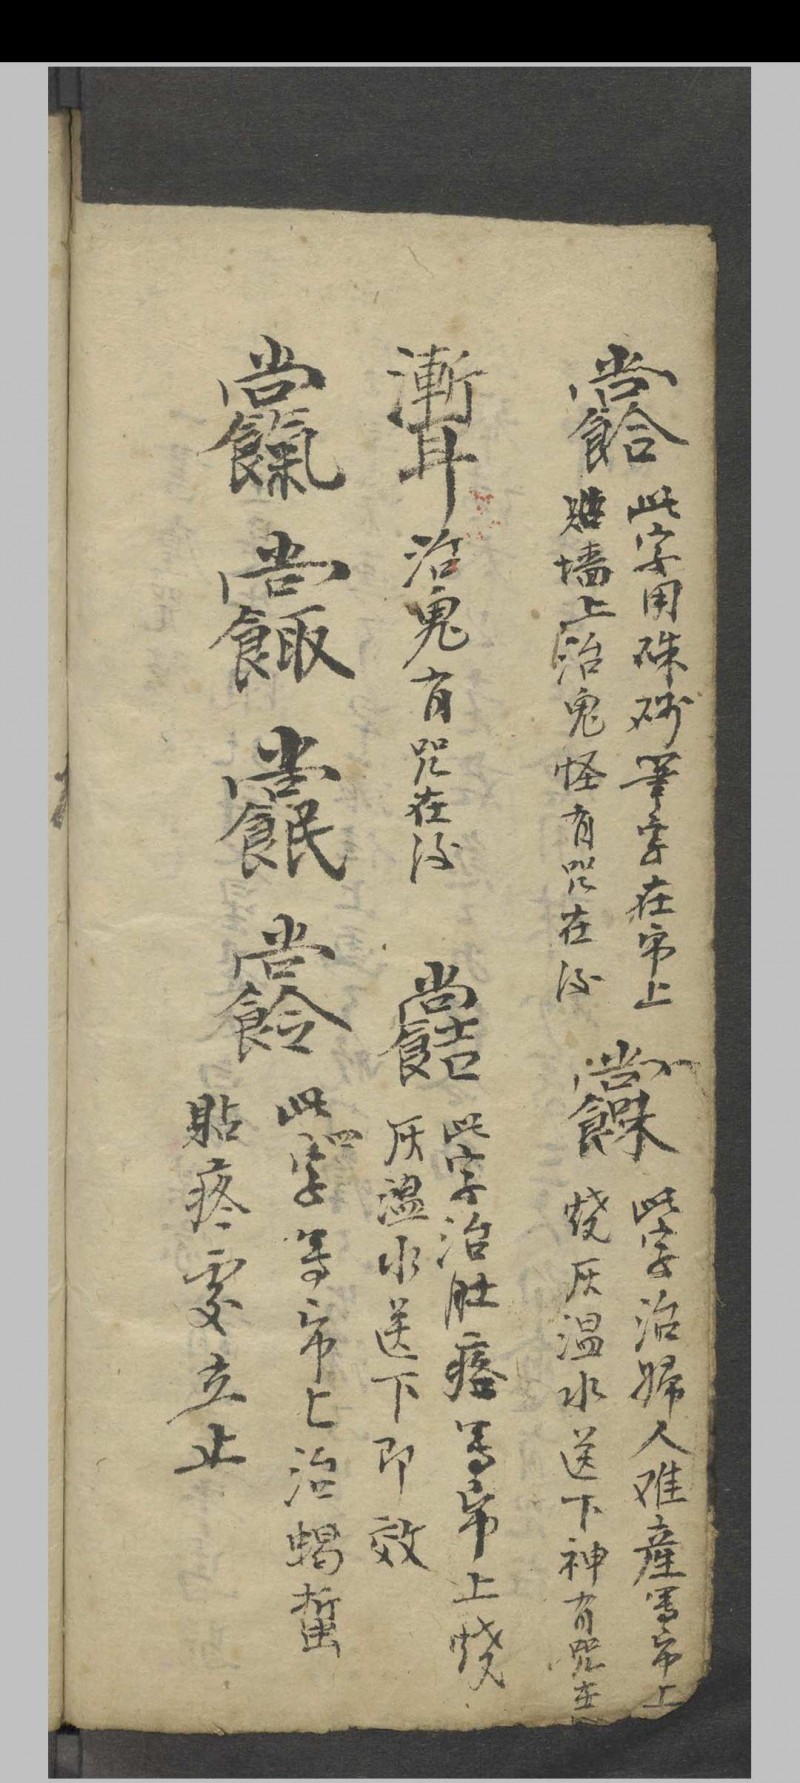 此字用硃砂筆字在帋上
贴墙上治鬼怪有咒在後
此字治婦人难產写帋上
烧灰温水送下神有咒在
治鬼有咒在後
此字治肚疼写帋上烧
灰温水送下即效
此四字写帋上治蝎蜇
貼疼處立止